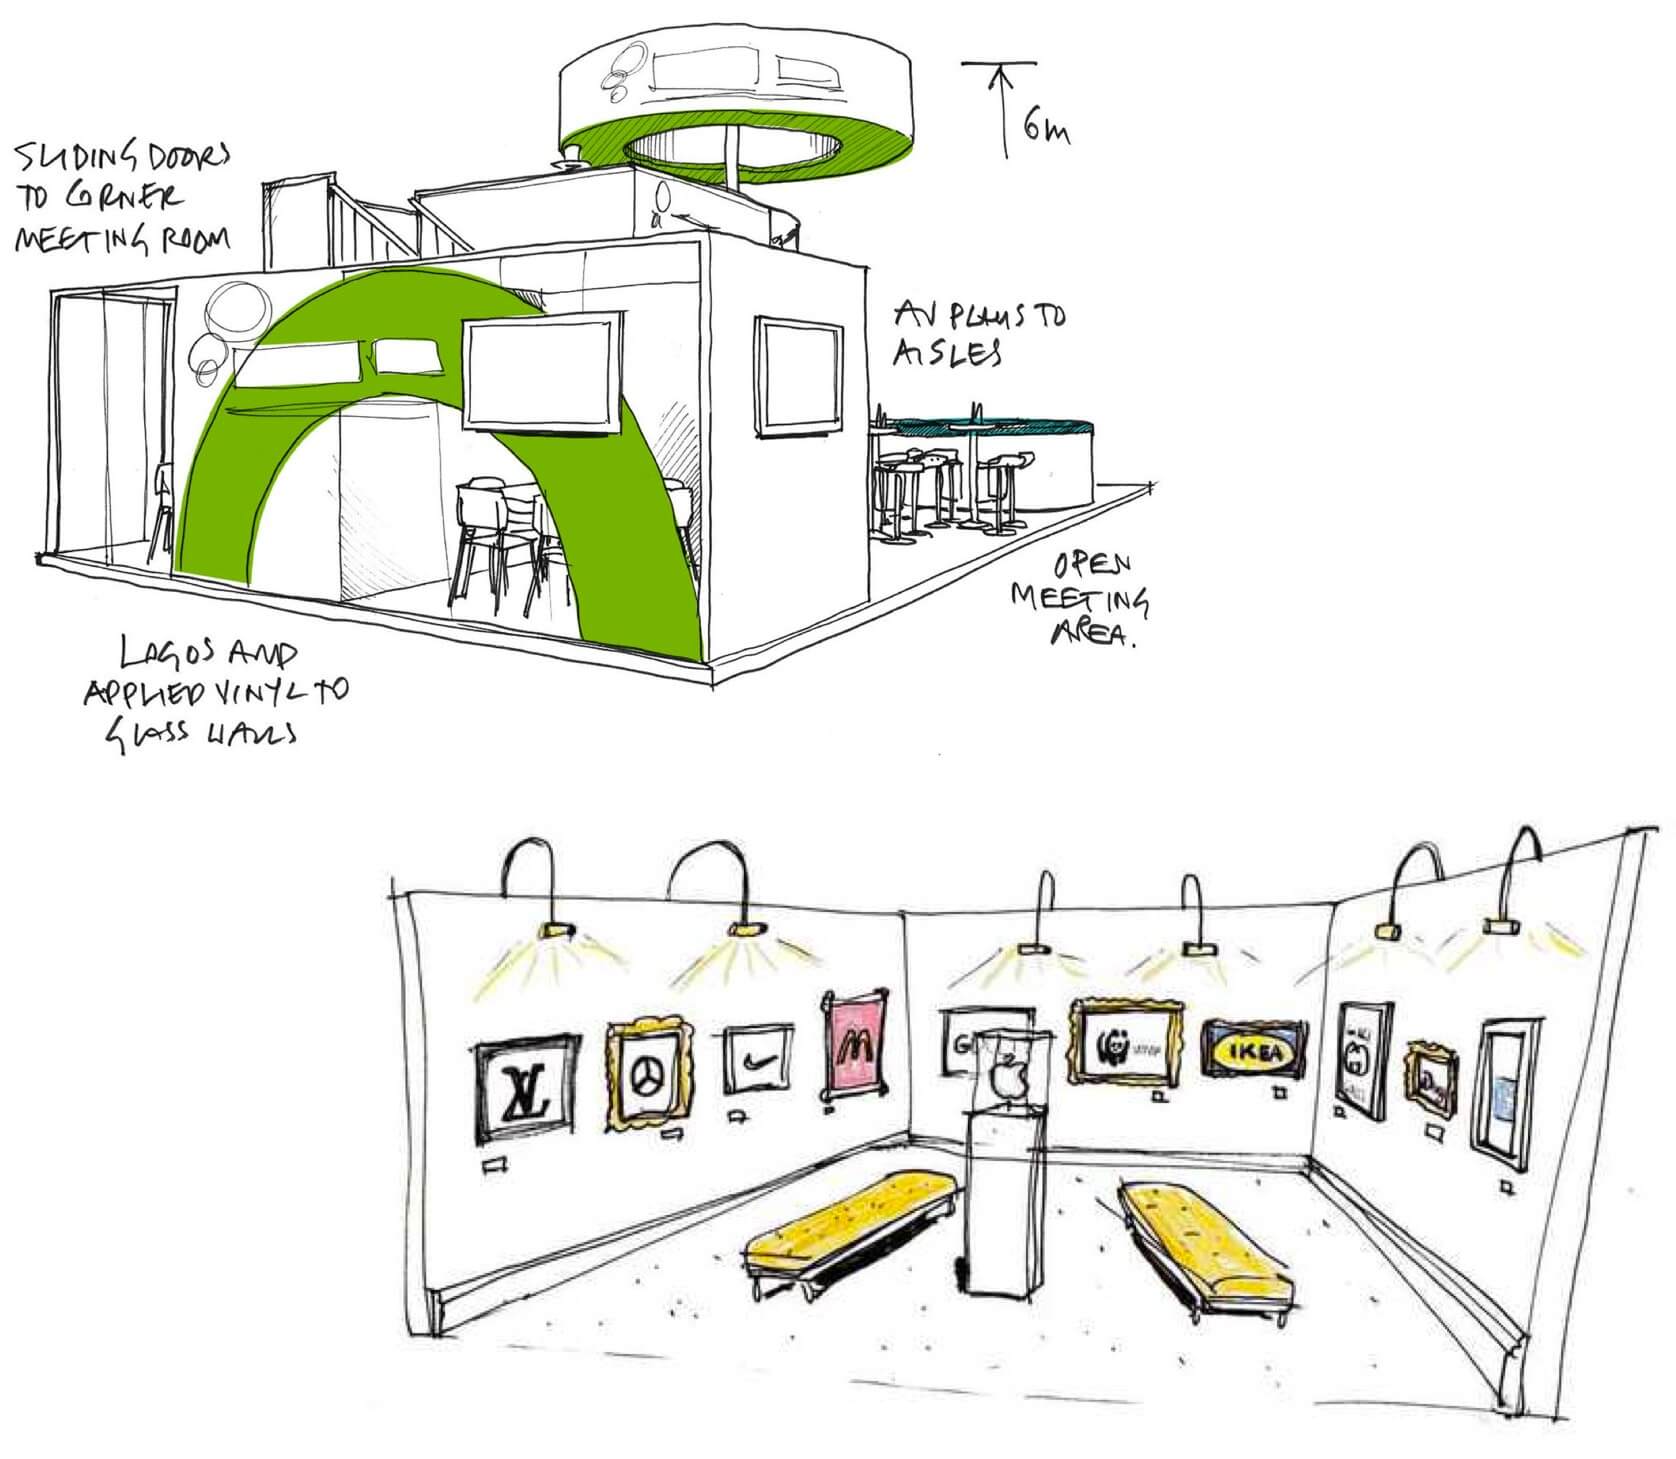 6m
SLIDING DOORS
TO CORNER
MEETING ROOM
AV PLAUS TO
AISLES
OPEN
MEETING
AREA.
LOGOS AND
APPLIED VINYL TO
GLASS WALLS
LV
M
G
WWF
IKEA